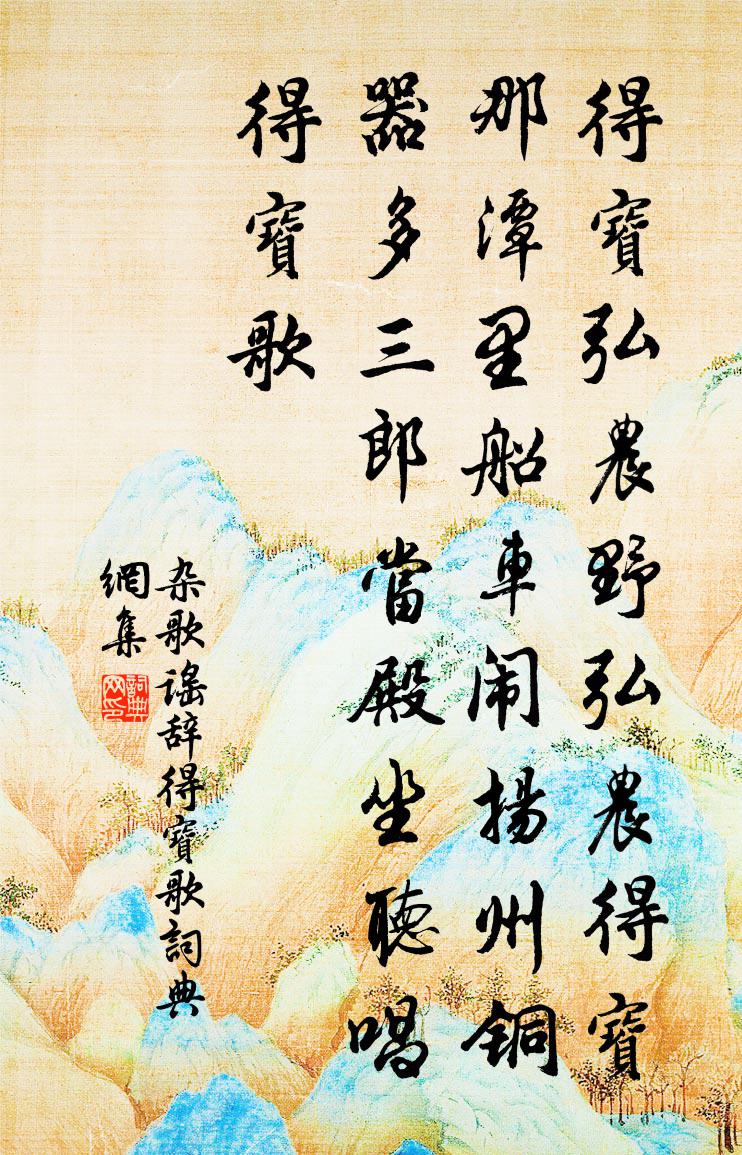 得寶弘農野弘農得寶
那潭里船車闹揚州铜
器多三郎當殿坐聽唱
得寶歌
杂歌谣辞得寶歌詞典
網集
詞典网印